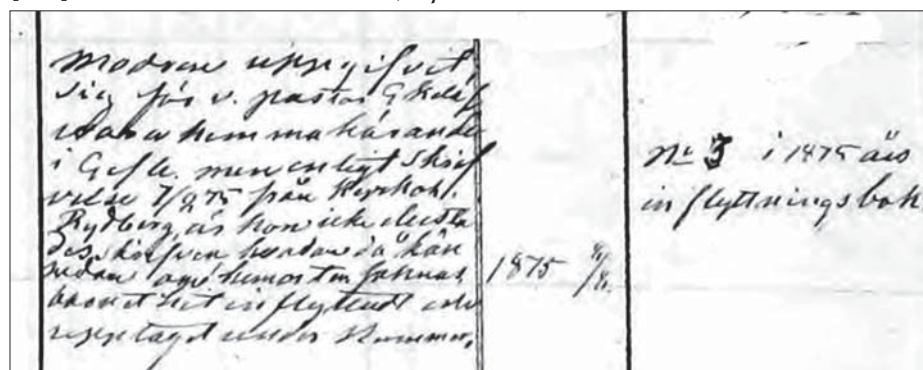 Modren uppgifvit
sig för v. pastor G
vara hemmahörande
i Gefle. men enligt Skrif
velse 7/9 75 från Kyrkoh.
Rydberg, är hon icke
skrifven hvadan då kän
nedom om hemorten saknas,
barnet hit inflyttadt och
upptaget under N:ummer,
1875
No 3 i 1875 års
inflyttningsbok